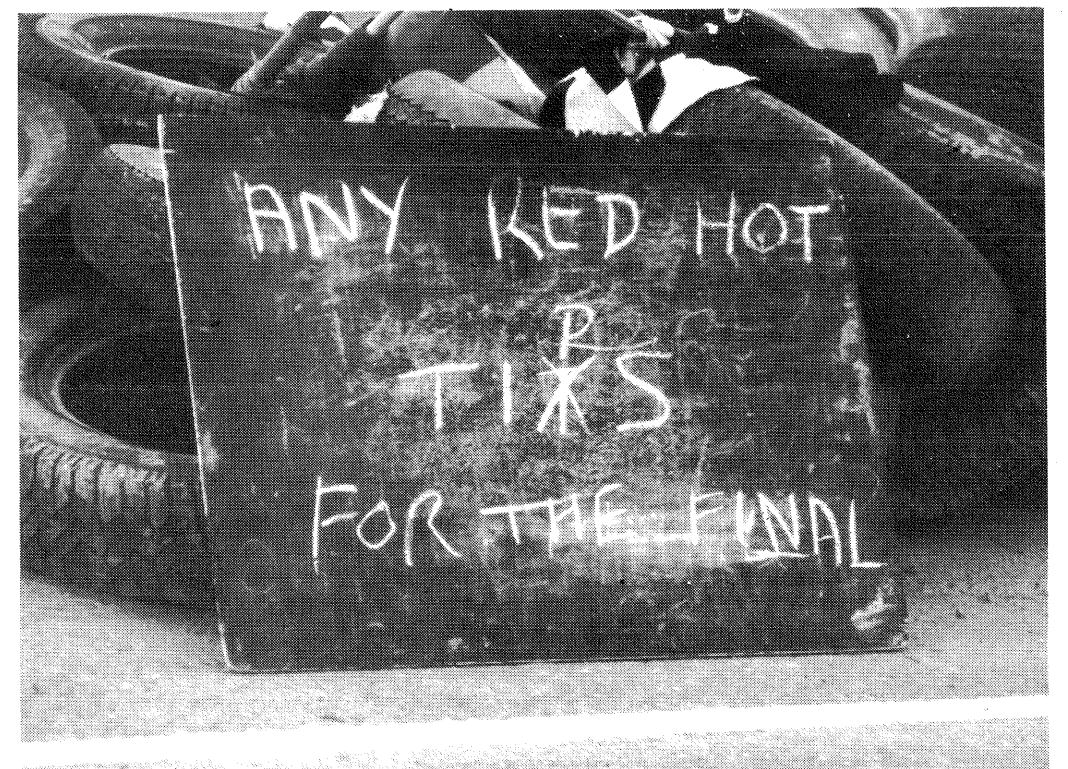 ANY RED HOT
R
TIXS
FOR THE FINAL